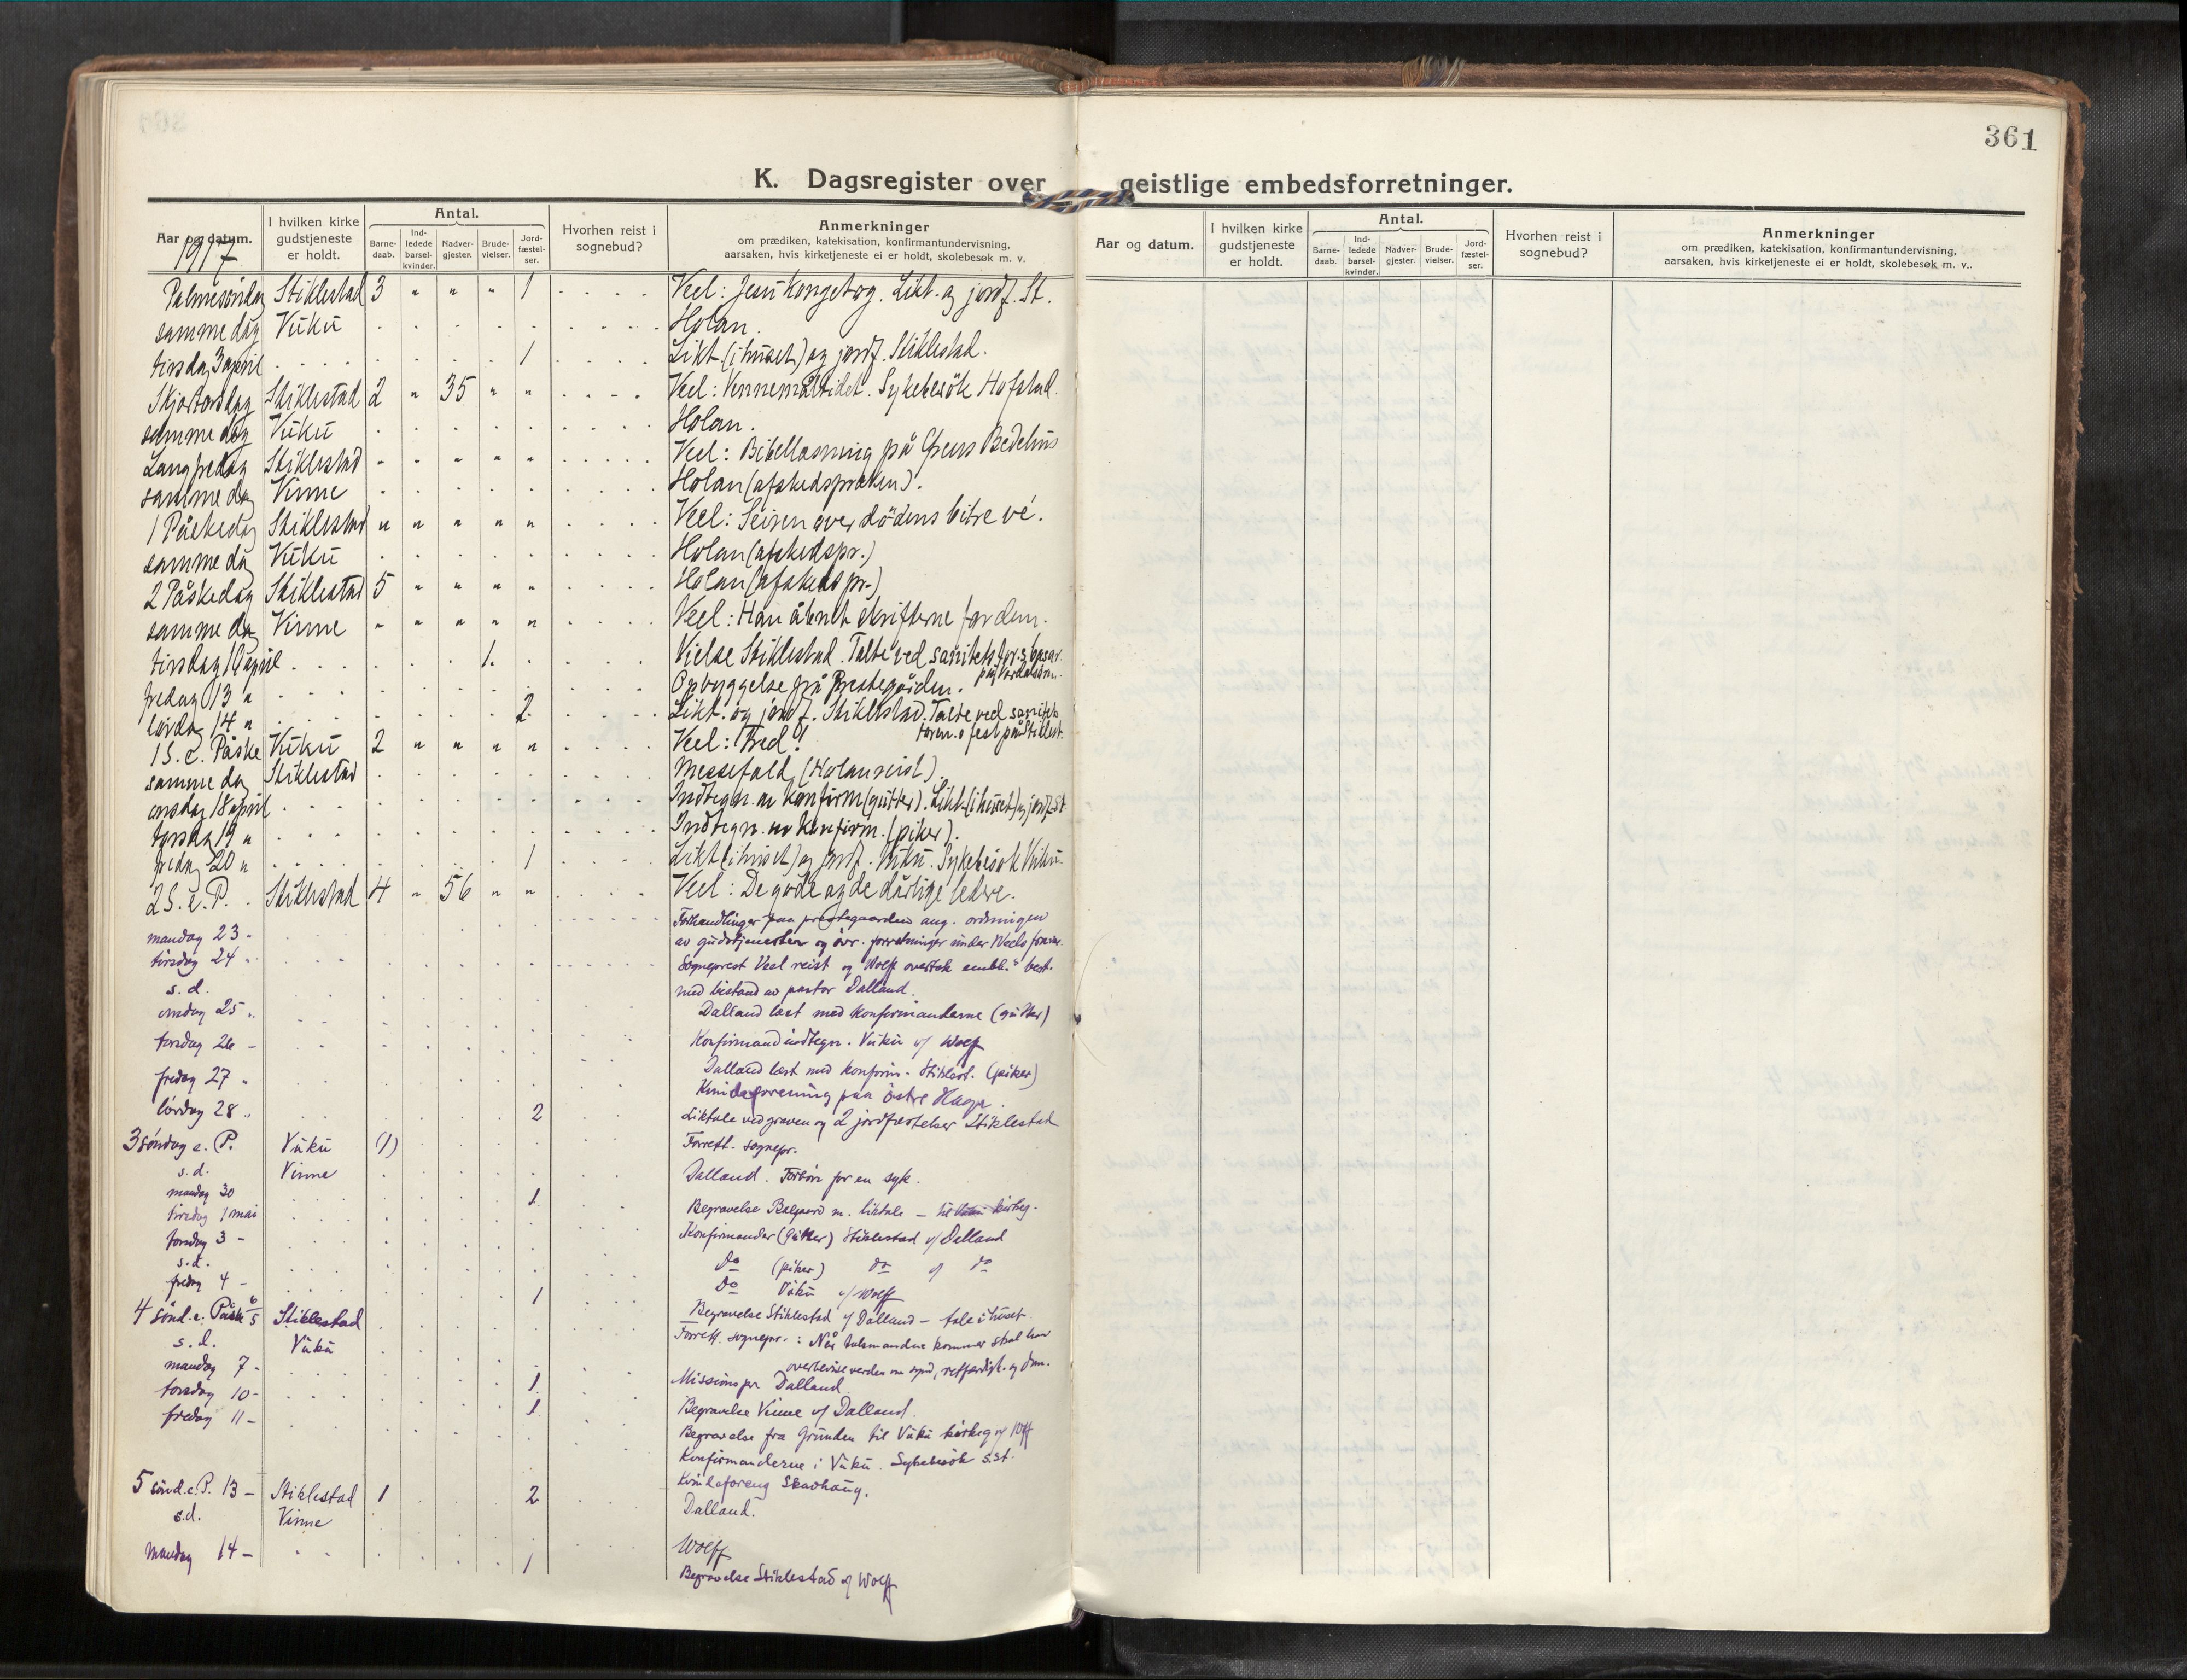 361
K. Dagsregister over geistlige embedsforretninger.
Aar og datum.
1917
I hvilken kirke
gudstjeneste
er holdt.
Antal.
Barne-
daab.
Ind-
ledede
barsel-
kvinder.
Nadver-
gjester.
Brude-
vielser.
Jord-
fæstel-
ser.
Hvorhen reist i
sognebud?
Anmerkninger
om prædiken, katekisation, konfirmantundervisning,
aarsaken, hvis kirketjeneste ei er holdt, skolebesøk m. v.
Palmesöndag Stiklestad 3 " " " 1 Veel: Jesu kongetog. Likt. og jordf. St.
samme dag Vuku Holan.
tirsdag 3 april 1 Likt. (i huset) og jordf. Stiklestad.
Skjærtorsdag Stiklestad 2 " 35 " " Veel: Vennemåltidet. Sykebesök Hofstad.
samme dag Vuku Holan.
Langfredag Stiklestad " " " " " Veel: Bibellæsning på Bedehus
samme dag Vinne Holan (afskedspræken).
1 Påskedag Stiklestad " " " " " Veel: Seiren over dödens bitre vé.
samme dag Vuku Holan (afskedspr.)
2 Påskedag Stiklestad 5 " " " " Holan (afskedspr.)
samme dag Vinne " " " " " Veel: Han åbnet skrifterne for dem.
tirsdag 10 april 1. Vielse Stiklestad. Talte ved sanitetsfor.s basar
på Verdalsöra.
fredag 13 " Opbyggelse på Prestegården.
lördag 14 " 2 Likt. og jordf. Stiklestad. Talte ved sanitets
foren.s fest på Stiklest.
1 S. e. Påske Vuku 2 " " " " Veel: Fred!
samme dag Stiklestad Messefald (Holan reist).
onsdag 18 april Indtegn. av konfirm (gutter). Likt. (i huset) og jordf. St.
torsdag 19 " Indtegn. av konfirm. (piker).
fredag 20 " 1 Likt (i huset) og jordf. Vuku. Sykebesök Vuku.
2 S. e. P. Stiklestad 4 " 56 " " Veel: De gode og de dårlige ledere.
mandag 23 - Forhandlinger paa prestegaarden ang. ordningen
av gudstjenesten og övr. forretninger under Veels
tirsdag 24 " Sogneprest Veel reist og Wolff overtok best.
s. d. med bistand av pastor Dalland.
onsdag 25 " Dalland læst med konfirmanderne (gutter)
torsdag 26 - Konfirmandindtegn. Vuku v/ Wolff
fredag 27 " Dalland læst med konfirm. Stiklest. (piker)
Kvindeforening paa östre Haga.
lördag 28 " 2 Liktale ved graven og 2 jordfæstelser Stiklestad
3 söndag e. P. Vuku (1) Forrett. sognepr.
s. d. Vinne Dalland. Forbön for en syk.
mandag 30 1 Begravelse m. liktale - til kirkeg.
tirsdag 1 mai Konfirmander (gutter) Stiklestad v/ Dalland
torsdag 3 - do (piker) do v/ do
s. d. do Vuku v/ Wolff
fredag 4 - 1 Begravelse Stiklestad v/ Dalland - tale i huset
4 sönd. e. Påsk 6/5 Stiklestad Forrett. sognepr.: Når talsmanden kommer skal han
overbevise verden om synd, retfærdigh. og dom.
s. d. Vuku Missionspr. Dalland
mandag 7 - 1 Begravelse Vinne v/ Dalland.
torsdag 10 - 1 Begravelse fra Grunden til Vuku kirkeg v/ Wolff
fredag 11 - Konfirmanderne i Vuku. Sykebesök s.st.
Kvindeforeng Skavhaug.
5 sönd. e. P. 13 - Stiklestad 1 2 Dalland.
s.d. Vinne Wolff
mandag 14 - 1 Begravelse Stiklestad v/ Wolff
Aar og datum.
I hvilken kirke
gudstjeneste
er holdt.
Antal.
Barne-
daab.
Ind-
ledede
barsel-
kvinder.
Nadver-
gjester.
Brude-
vielser.
Jord-
fæstel-
ser.
Hvorhen reist i
sognebud?
Anmerkninger
om prædiken, katekisation, konfirmantundervisning,
aarsaken, hvis kirketjeneste ei er holdt, skolebesøk m. v..